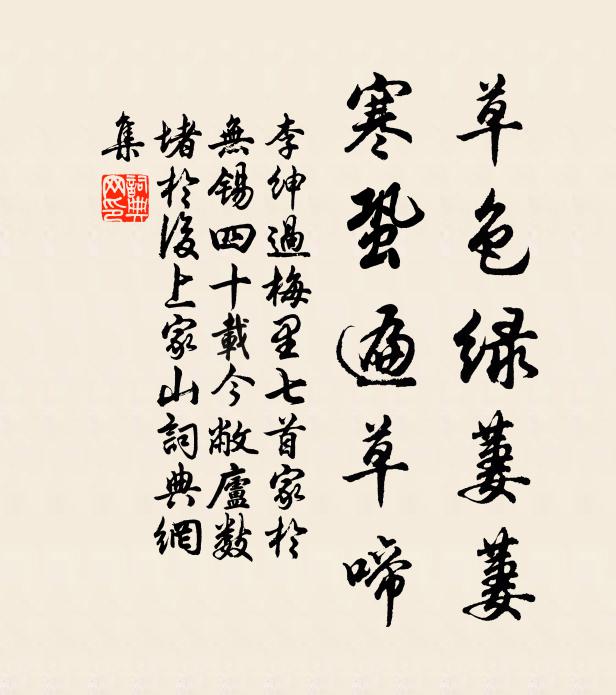 草色绿萋萋
寒蛩遍草啼
李紳過梅里七首家於
無錫四十載今敝廬數
堵於後上家山詞典網
集
詞典
网印